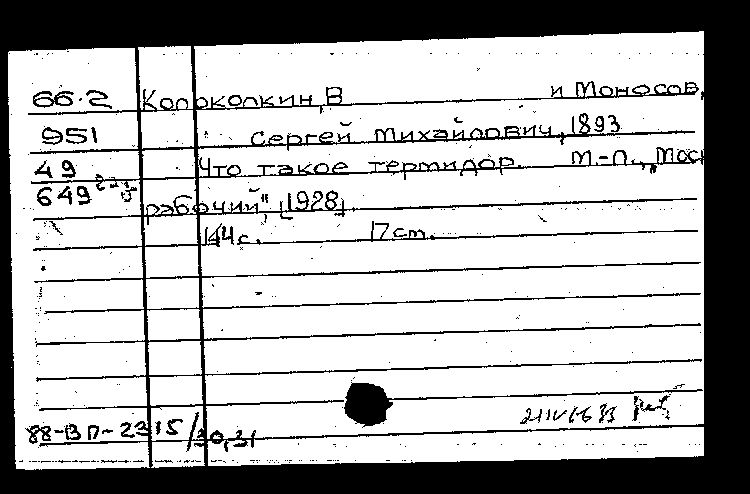 66.2 Колоколкин, В и Моносов,
951 Сергей Михайлович, 1893
49 Что такое термидор. М.-Л., „Моск
649 рабочий", [1928].
144 с. 17 см.
88-ВП-2315/30,31